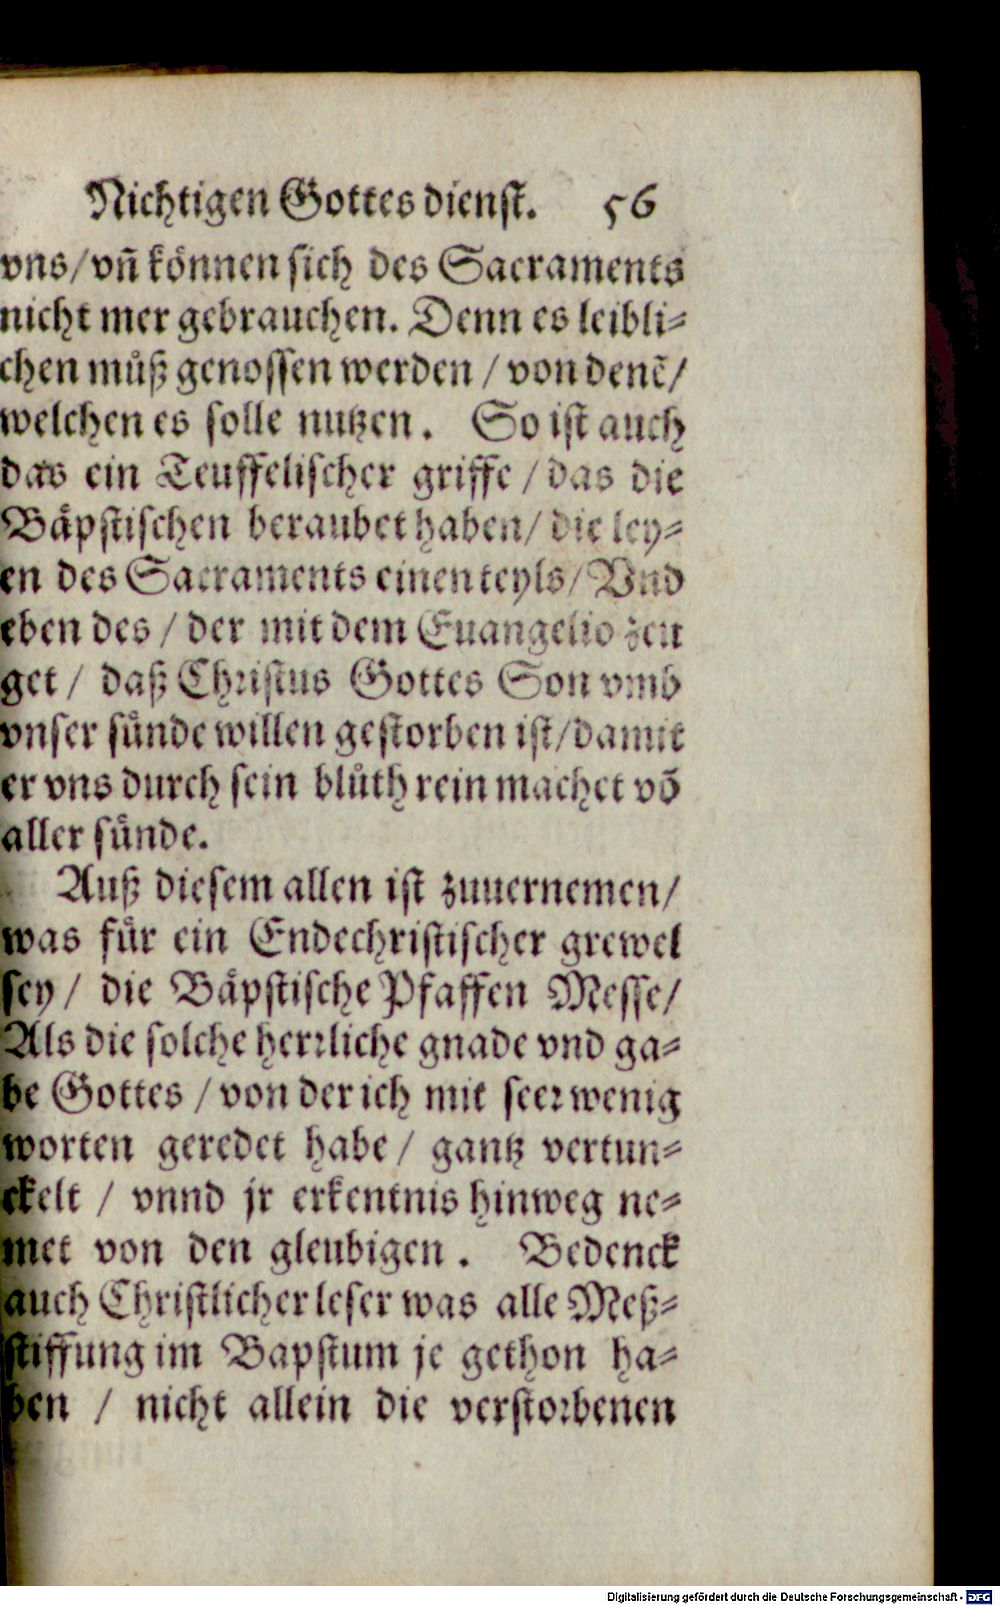 Nichtigen Gottes dienst. 56
vns/vñ können sich des Sacraments
nicht mer gebrauchen. Denn es leibli⸗
chen můß genossen werden / von denẽ/
welchen es solle nutzen. So ist auch
das ein Teuffelischer griffe / das die
Bäpstischen beraubet haben/ die ley⸗
en des Sacraments einen teyls/ Vnd
eben des / der mit dem Euangelio zeu
get / daß Christus Gottes Son vmb
vnser sünde willen gestorben ist/damit
er vns durch sein blůth rein machet võ
aller sünde.
Auß diesem allen ist zuuernemen/
was für ein Endechristischer grewel
sey / die Bäpstische Pfaffen Messe/
Als die solche herrliche gnade vnd ga⸗
be Gottes / von der ich mit seer wenig
worten geredet habe / gantz vertun⸗
ckelt / vnnd jr erkentnis hinweg ne⸗
met von den gleubigen. Bedenck
auch Christlicher leser was alle Meß⸗
stiffung im Bapstum je gethon ha⸗
ben / nicht allein die verstorbenen
Digitalisierung gefördert durch die Deutsche Forschungsgemeinschaft - DFG